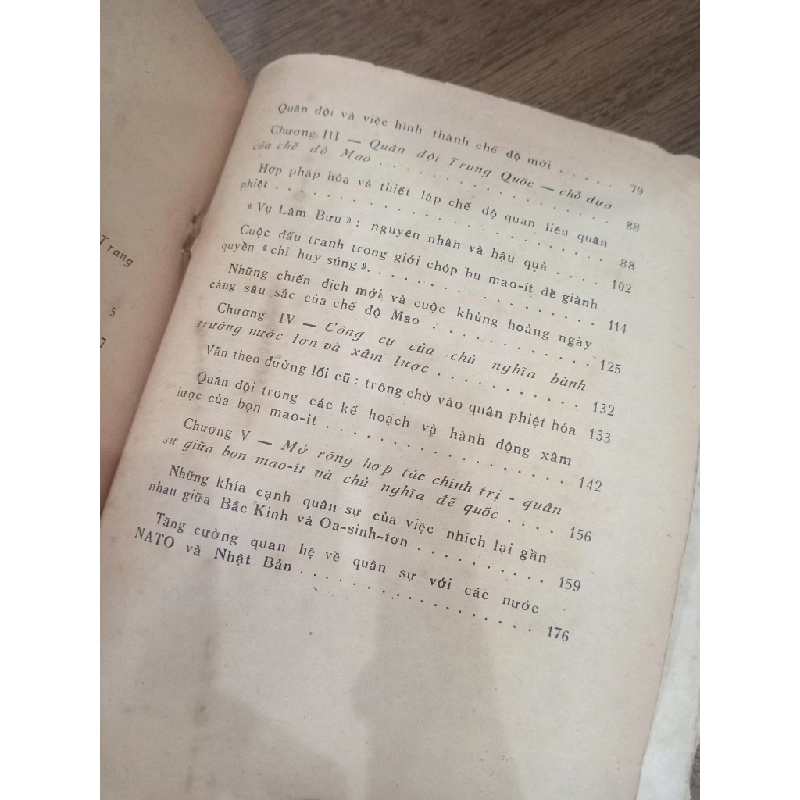 Trang
5
Quân đội và việc hình thành chế độ mới . . . . . 79
Chương III — Quân đội Trung Quốc — chỗ dựa
của chế độ Mao . . . . . . . . . . . . . . . 88
Hợp pháp hóa và thiết lập chế độ quan liêu quân
phiệt . . . . . . . . . . . . . . . . . . . . 88
« Vụ Lâm Bưu » : nguyên nhân và hậu quả . . . . 102
Cuộc đấu tranh trong giới chóp bu mao-ít để giành
quyền « chỉ huy súng ». . . . . . . . . . . . . 114
Những chiến dịch mới và cuộc khủng hoảng ngày
càng sâu sắc của chế độ Mao . . . . . . . . . . 125
Chương IV — Công cụ của chủ nghĩa bành
trướng nước lớn và xâm lược . . . . . . . . . . 132
Vẫn theo đường lối cũ : trông chờ vào quân phiệt hóa 133
Quân đội trong các kế hoạch và hành động xâm
lược của bọn mao-ít . . . . . . . . . . . . . . 142
Chương V — Mở rộng hợp tác chính trị - quân
sự giữa bọn mao-ít và chủ nghĩa đế quốc . . . . 156
Những khía cạnh quân sự của việc nhích lại gần
nhau giữa Bắc Kinh và Oa-sinh-tơn . . . . . . . . 159
Tăng cường quan hệ về quân sự với các nước
NATO và Nhật Bản . . . . . . . . . . . . . . . 176